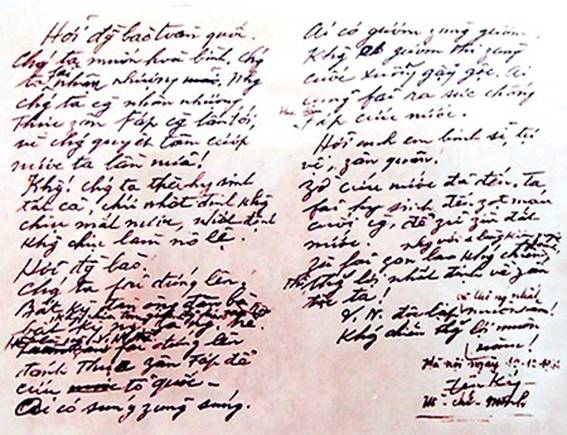 Hỡi đg bào toàn quốc.
Chg ta muốn hoà bình, chg
ta fải nhân nhượng. Nhg
chg ta cg nhân nhượng
thực zân Fáp cg lấn tới,
vì chg quyết tâm cướp
nước ta lần nữa!
Khg! chg ta thà hy sinh
tất cả, chứ nhất định khg
chịu mất nước, nhất định
khg chịu làm nô lệ.
Hỡi đg bào,
Chg ta fải đứng lên!
Bất kỳ đàn ông đàn bà
bất kỳ ng già ng trẻ.
fải đứng lên
đánh thực zân Fáp để
cứu tổ quốc -
Ai có súng zùng súng.
Ai có gươm zùng gươm.
Khg có gươm thì zùng
cuốc xuổng gậy gộc. Ai
cũng fải ra sức chống
Fáp cứu nước.
Hỡi anh em binh sĩ, tự
vệ, zân quân.
Zờ cứu nước đã đến. Ta
fải hy sinh đến zọt máu
cuối cg, để zữ zìn đất
nước.
Zù fải zan lao khg chiến,
thg lợi nhất định về zân
tộc ta!
và thống nhất
V.N. độc lập muôn năm!
Khg chiến thg lợi muôn
năm!
Hà nội ngày 19-12-46
Hồ-chí-minh